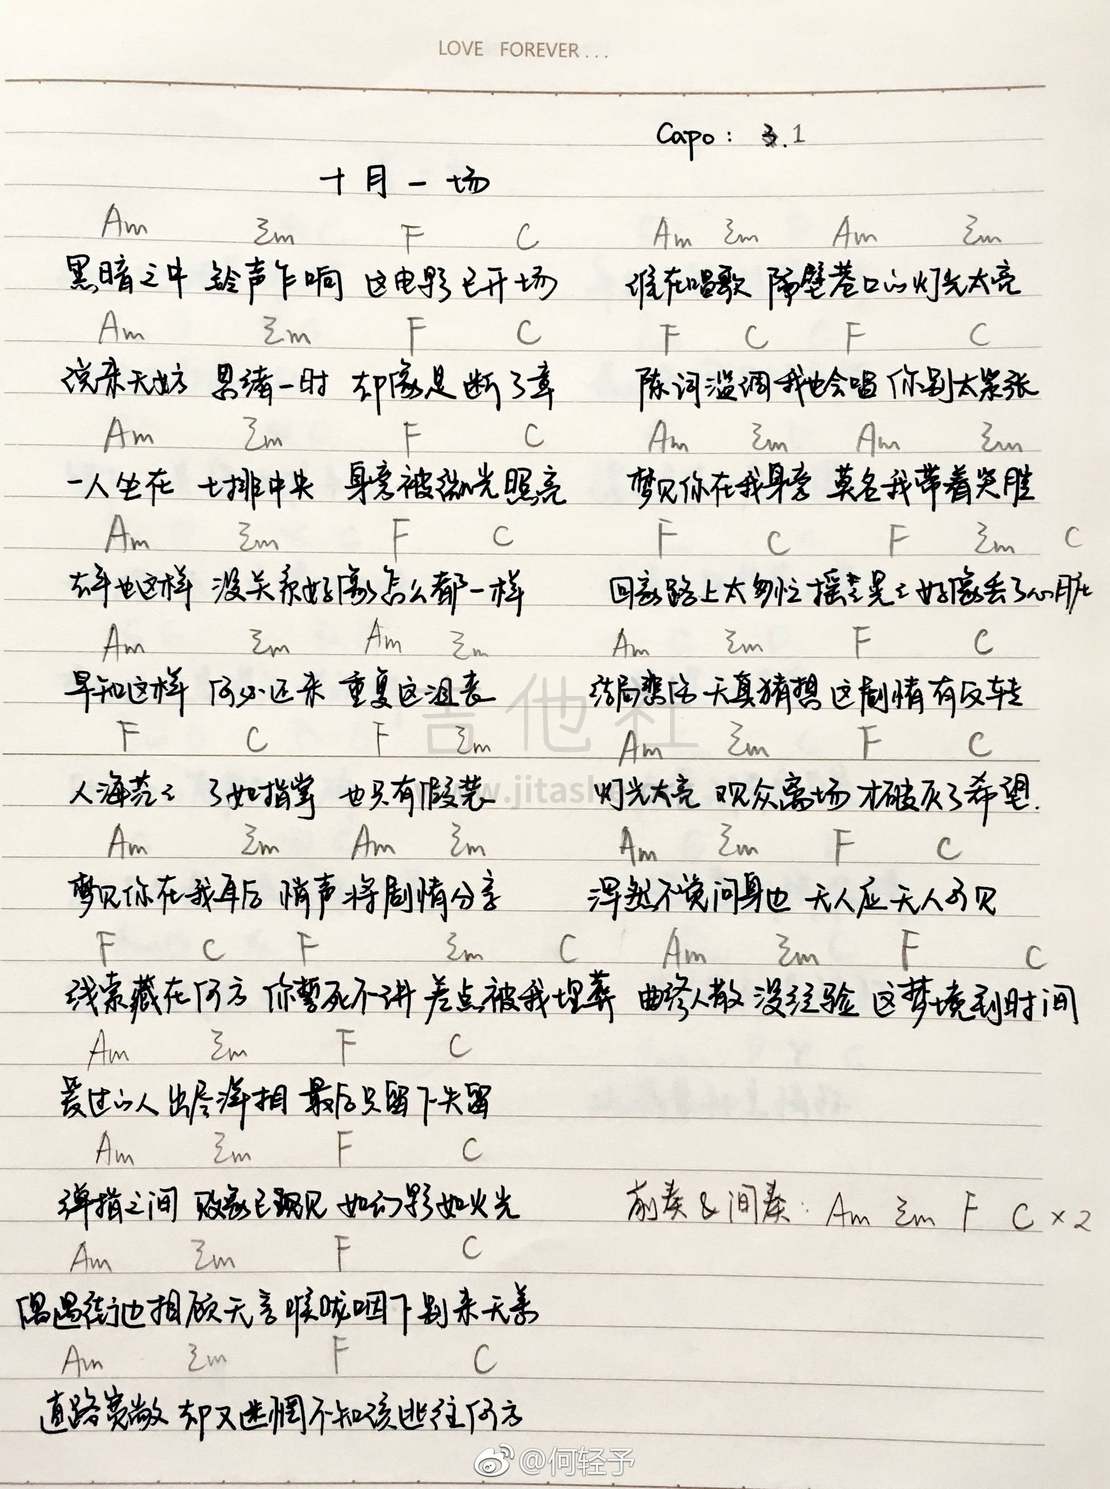 LOVE FOREVER...
Capo: 1
十月一场
Am Em F C
黑暗之中 铃声乍响 这电影已开场
Am Em F C
说来无妨 思绪一时 却像是断了章
Am Em F C
一人坐在 七排中央 身旁被微光照亮
Am Em F C
去年也这样 没关系好像怎么都一样
Am Em Am Em
早知这样 何必还来 重复这沮丧
F C F Em
人海茫々 了如指掌 也只有假装
Am Em Am Em
梦见你在我耳后 悄声将剧情分享
F C F Em C
线索藏在何方 你誓死不讲 差点被我埋葬
Am Em F C
爱过的人 出尽洋相 最后只留下失留
Am Em F C
弹指之间 败象已现 如幻影如火光
Am Em F C
偶遇街边 相顾无言 喉咙咽下别来无恙
Am Em F C
道路宽敞 却又迷惘 不知该逃往何方
Am Em Am Em
谁在唱歌 隔壁巷口的灯光太亮
F C F C
陈词滥调我也会唱 你别太紧张
Am Em Am Em
梦见你在我身旁 莫名我带着哭腔
F C F Em C
回家路上太匆忙 摇々晃々 好像丢了心脏
Am Em F C
结局悲伤 天真猜想 这剧情有反转
Am Em F C
灯光大亮 观众离场 才破灭了希望.
Am Em F C
浑然不觉问身边 无人应 无人可见
Am Em F C
曲终人散 没经验 这梦境到时间
前奏&间奏: Am Em F C ×2
吉他社
www.jitashe
@何轻予